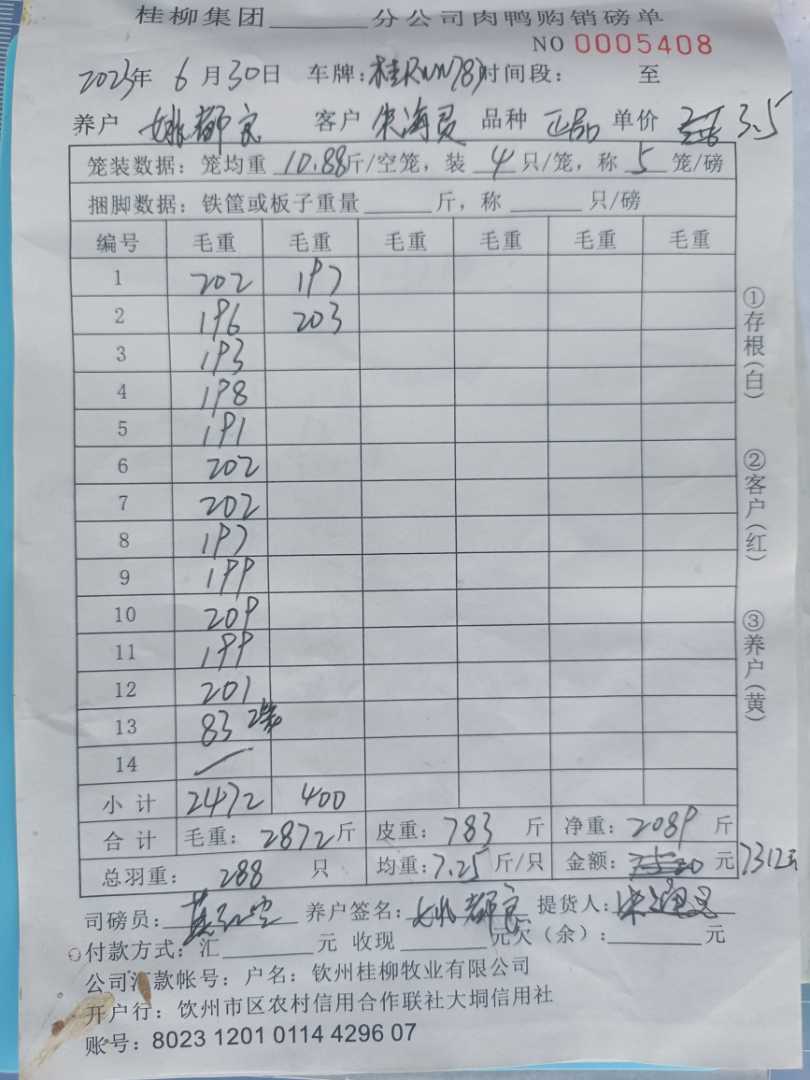 桂柳集团______分公司肉鸭购销磅单
NO 0005408
2023年 6 月30日 车牌:桂RWN783 时间段: 至
养户 姚都良 客户 朱海灵 品种 正品 单价 3.5
笼装数据: 笼均重 10.88斤/空笼, 装 4 只/笼, 称 5 笼/磅
捆脚数据: 铁筐或板子重量 ____ 斤, 称 ____ 只/磅
编号 毛重 毛重 毛重 毛重 毛重 毛重
1 202 197
2 196 203
3 193
4 198
5 191
6 202
7 202
8 197
9 199
10 209
11 199
12 201
13 83 2笼
14 /
小 计 2472 400
合 计 毛重: 2872斤 皮重: 783 斤 净重: 2089 斤
总羽重: 288 只 均重: 7.25斤/只 金额: 元 7312元
司磅员: 养户签名: 姚都良 提货人: 朱海灵
付款方式: 汇______元 收现______元欠(余):______元
公司汇款帐号: 户名: 钦州桂柳牧业有限公司
开户行: 钦州市区农村信用合作联社大垌信用社
账号: 8023 1201 0114 4296 07
①存根(白)
②客户(红)
③养户(黄)